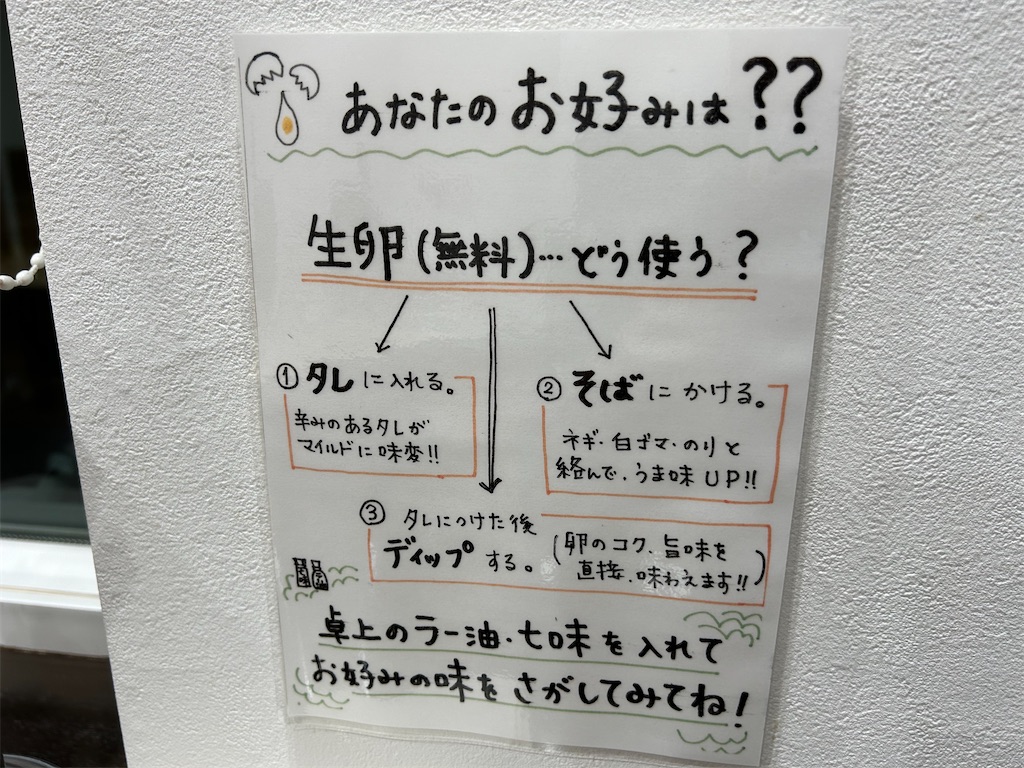 あなたのお好みは??
生卵(無料)…どう使う?
①タレに入れる。
辛みのあるタレが
マイルドに味変!!
②そばにかける。
ネギ・白ゴマ・のりと
絡んで、うま味UP!!
③タレにつけた後
ディップする。
(卵のコク、旨味を
直接、味わえます!!)
卓上のラー油・七味を入れて
お好みの味をさがしてみてね!